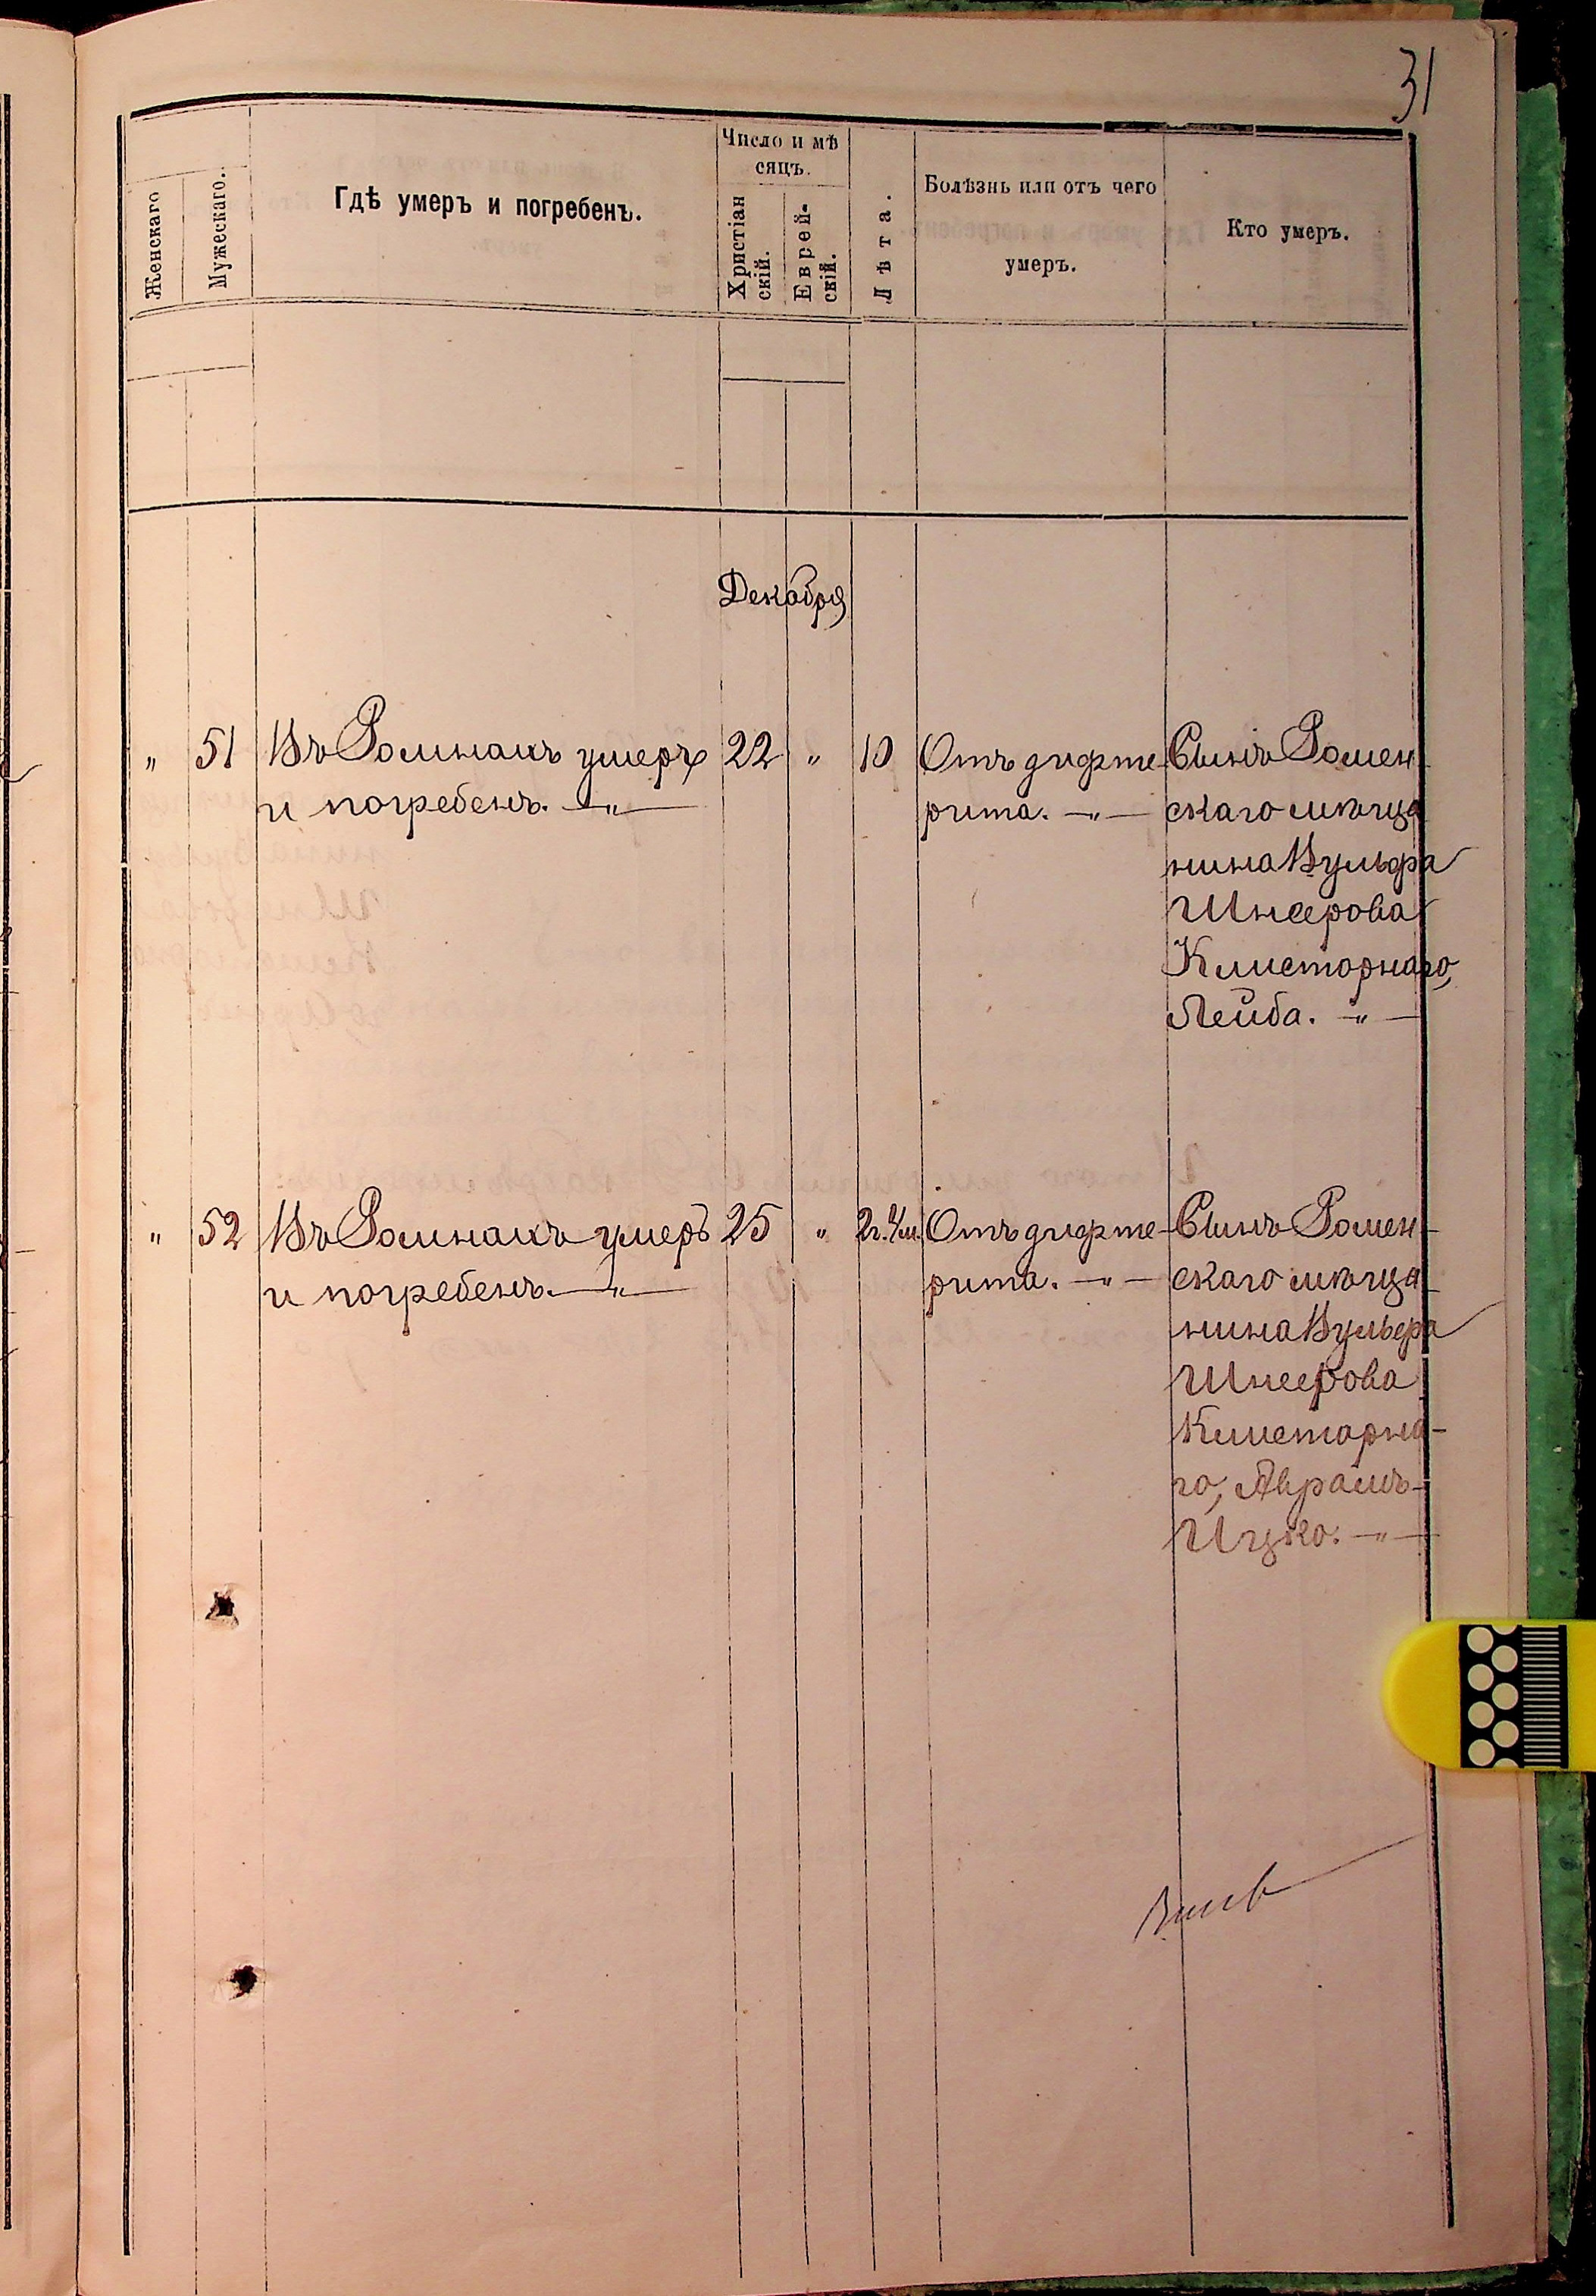 31
Женскаго
Мужескаго.
Гдѣ умеръ и погребенъ.
Число и мѣ
сяцъ.
Христіан
скій.
Еврей-
скій.
Лѣта.
Болѣзнь или отъ чего
умеръ.
Кто умеръ.
Декабря
„ 51 Въ Ромнахъ умеръ 22 „ 10 Отъ дифте- Сынъ Ромен-
и погребенъ. —„— рита. —„— скаго мѣща
нина Вульфа
Шнеерова
Клисторнаго,
Лейба. —„—
„ 52 Въ Ромнахъ умеръ 25 „ 2г. 4м. Отъ дифте- Сынъ Ромен-
и погребенъ. —„— рита. —„— скаго мѣща-
нина Вульфа
Шнеерова
Клисторна-
го, Абрамъ-
Ицко. —„—